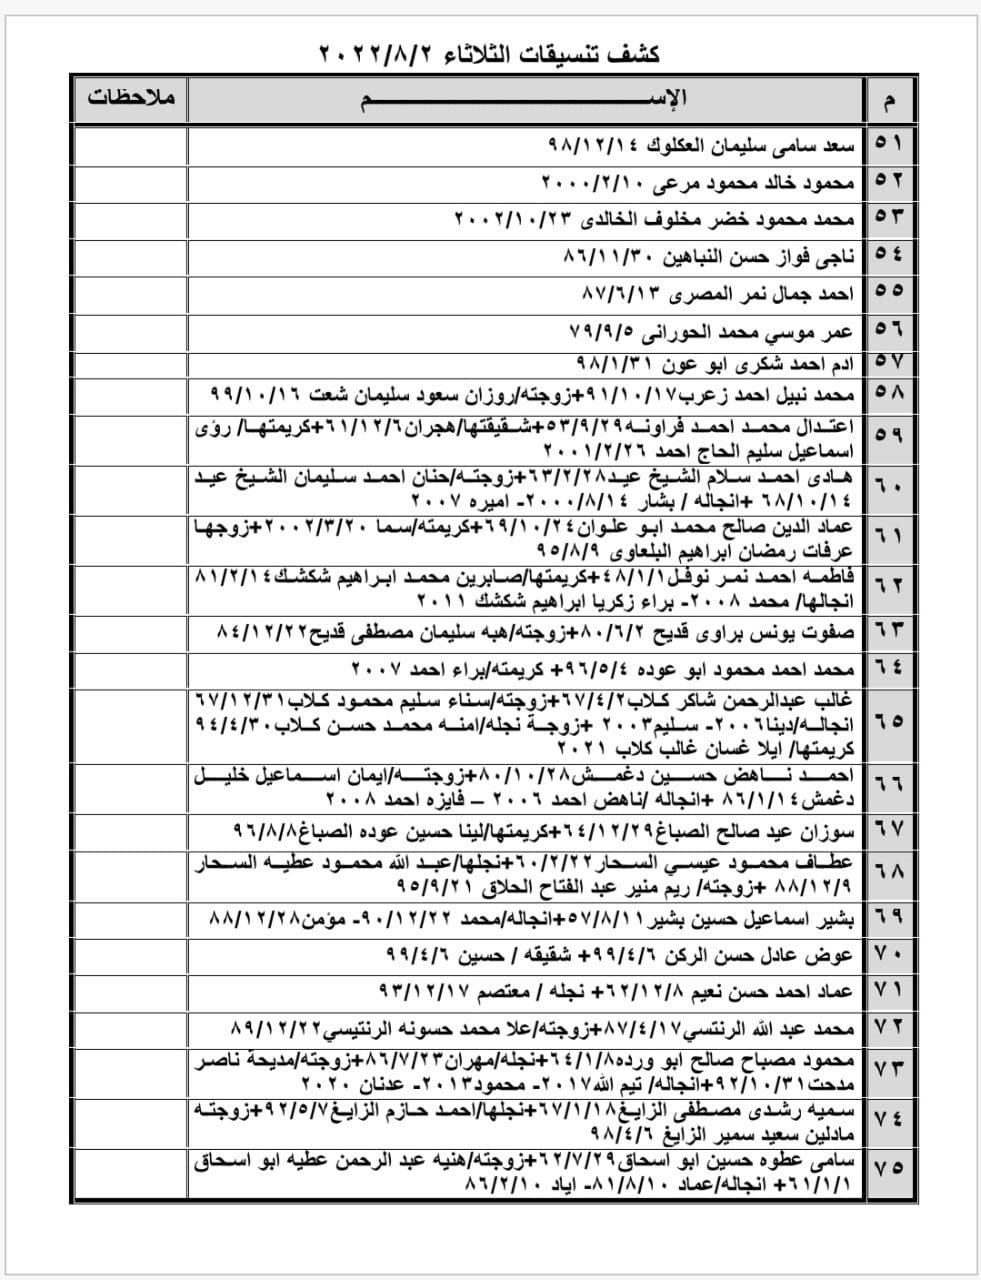 كشف تنسيقات الثلاثاء ٢٠٢٢/٨/٢
م الإســـــم ملاحظات
٥١ سعد سامى سليمان العكلوك ٩٨/١٢/١٤
٥٢ محمود خالد محمود مرعى ٢٠٠٠/٢/١٠
٥٣ محمد محمود خضر مخلوف الخالدى ٢٠٠٢/١٠/٢٣
٥٤ ناجى فواز حسن النباهين ٨٦/١١/٣٠
٥٥ احمد جمال نمر المصرى ٨٧/٦/١٣
٥٦ عمر موسي محمد الحورانى ٧٩/٩/٥
٥٧ ادم احمد شكرى ابو عون ٩٨/١/٣١
٥٨ محمد نبيل احمد زعرب٩١/١٠/١٧+زوجته/روزان سعود سليمان شعت ٩٩/١٠/١٦
٥٩ اعتدال محمد احمد فراونه٥٣/٩/٢٩+شقيقتها/هجران٦١/١٢/٦+كريمتها/ رؤى
اسماعيل سليم الحاج احمد ٢٠٠١/٢/٢٦
٦٠ هادى احمد سلام الشيخ عيد٦٣/٢/٢٨+زوجته/حنان احمد سليمان الشيخ عيد
٦٨/١٠/١٤ +انجاله / بشار ٢٠٠٠/٨/١٤- اميره ٢٠٠٧
٦١ عماد الدين صالح محمد ابو علوان٦٩/١٠/٢٤+كريمته/سما ٢٠٠٢/٣/٢٠+زوجها
عرفات رمضان ابراهيم البلعاوى ٩٥/٨/٩
٦٢ فاطمه احمد نمر نوفل٤٨/١/١+كريمتها/صابرين محمد ابراهيم شكشك٨١/٢/١٤
انجالها/ محمد ٢٠٠٨- براء زكريا ابراهيم شكشك ٢٠١١
٦٣ صفوت يونس براوى قديح ٨٠/٦/٢+زوجته/هبه سليمان مصطفى قديح٨٤/١٢/٢٢
٦٤ محمد احمد محمود ابو عوده ٩٦/٥/٤+ كريمته/براء احمد ٢٠٠٧
٦٥ غالب عبدالرحمن شاكر كلاب٦٧/٤/٢+زوجته/سناء سليم محمود كلاب٦٧/١٢/٣١
انجاله/دينا٢٠٠٦- سليم٢٠٠٣ +زوجة نجله/امنه محمد حسن كلاب٩٤/٤/٣٠
كريمتها/ ايلا غسان غالب كلاب ٢٠٢١
٦٦ احمد ناهض حسين دغمش٨٠/١٠/٢٨+زوجته/ايمان اسماعيل خليل
دغمش٨٦/١/١٤ +انجاله /ناهض احمد ٢٠٠٦ – فايزه احمد ٢٠٠٨
٦٧ سوزان عيد صالح الصباغ٦٤/١٢/٢٩+كريمتها/لينا حسين عوده الصباغ٩٦/٨/٨
٦٨ عطاف محمود عيسي السحار٦٠/٢/٢٢+نجلها/عبد الله محمود عطيه السحار
٨٨/١٢/٩ +زوجته/ ريم منير عبد الفتاح الحلاق ٩٥/٩/٢١
٦٩ بشير اسماعيل حسين بشير٥٧/٨/١١+انجاله/محمد ٩٠/١٢/٢٢- مؤمن٨٨/١٢/٢٨
٧٠ عوض عادل حسن الركن ٩٩/٤/٦+ شقيقه / حسين ٩٩/٤/٦
٧١ عماد احمد حسن نعيم ٦٢/١٢/٨+ نجله / معتصم ٩٣/١٢/١٧
٧٢ محمد عبد الله الرنتسي٨٧/٤/١٧+زوجته/علا محمد حسونه الرنتيسي٨٩/١٢/٢٢
٧٣ محمود مصباح صالح ابو ورده٦٤/١/٨+نجله/مهران٨٦/٧/٢٣+زوجته/مديحة ناصر
مدحت٩٢/١٠/٣١+انجاله/ تيم الله٢٠١٧- محمود٢٠١٣- عدنان ٢٠٢٠
٧٤ سميه رشدى مصطفى الزايغ٦٧/١/١٨+نجلها/احمد حازم الزايغ٩٢/٥/٧+زوجته
مادلين سعيد سمير الزايغ ٩٨/٤/٦
٧٥ سامى عطوه حسين ابو اسحاق٦٢/٧/٢٩+زوجته/هنيه عبد الرحمن عطيه ابو اسحاق
٦١/١/١+ انجاله/عماد ٨١/٨/١٠- اياد ٨٦/٢/١٠